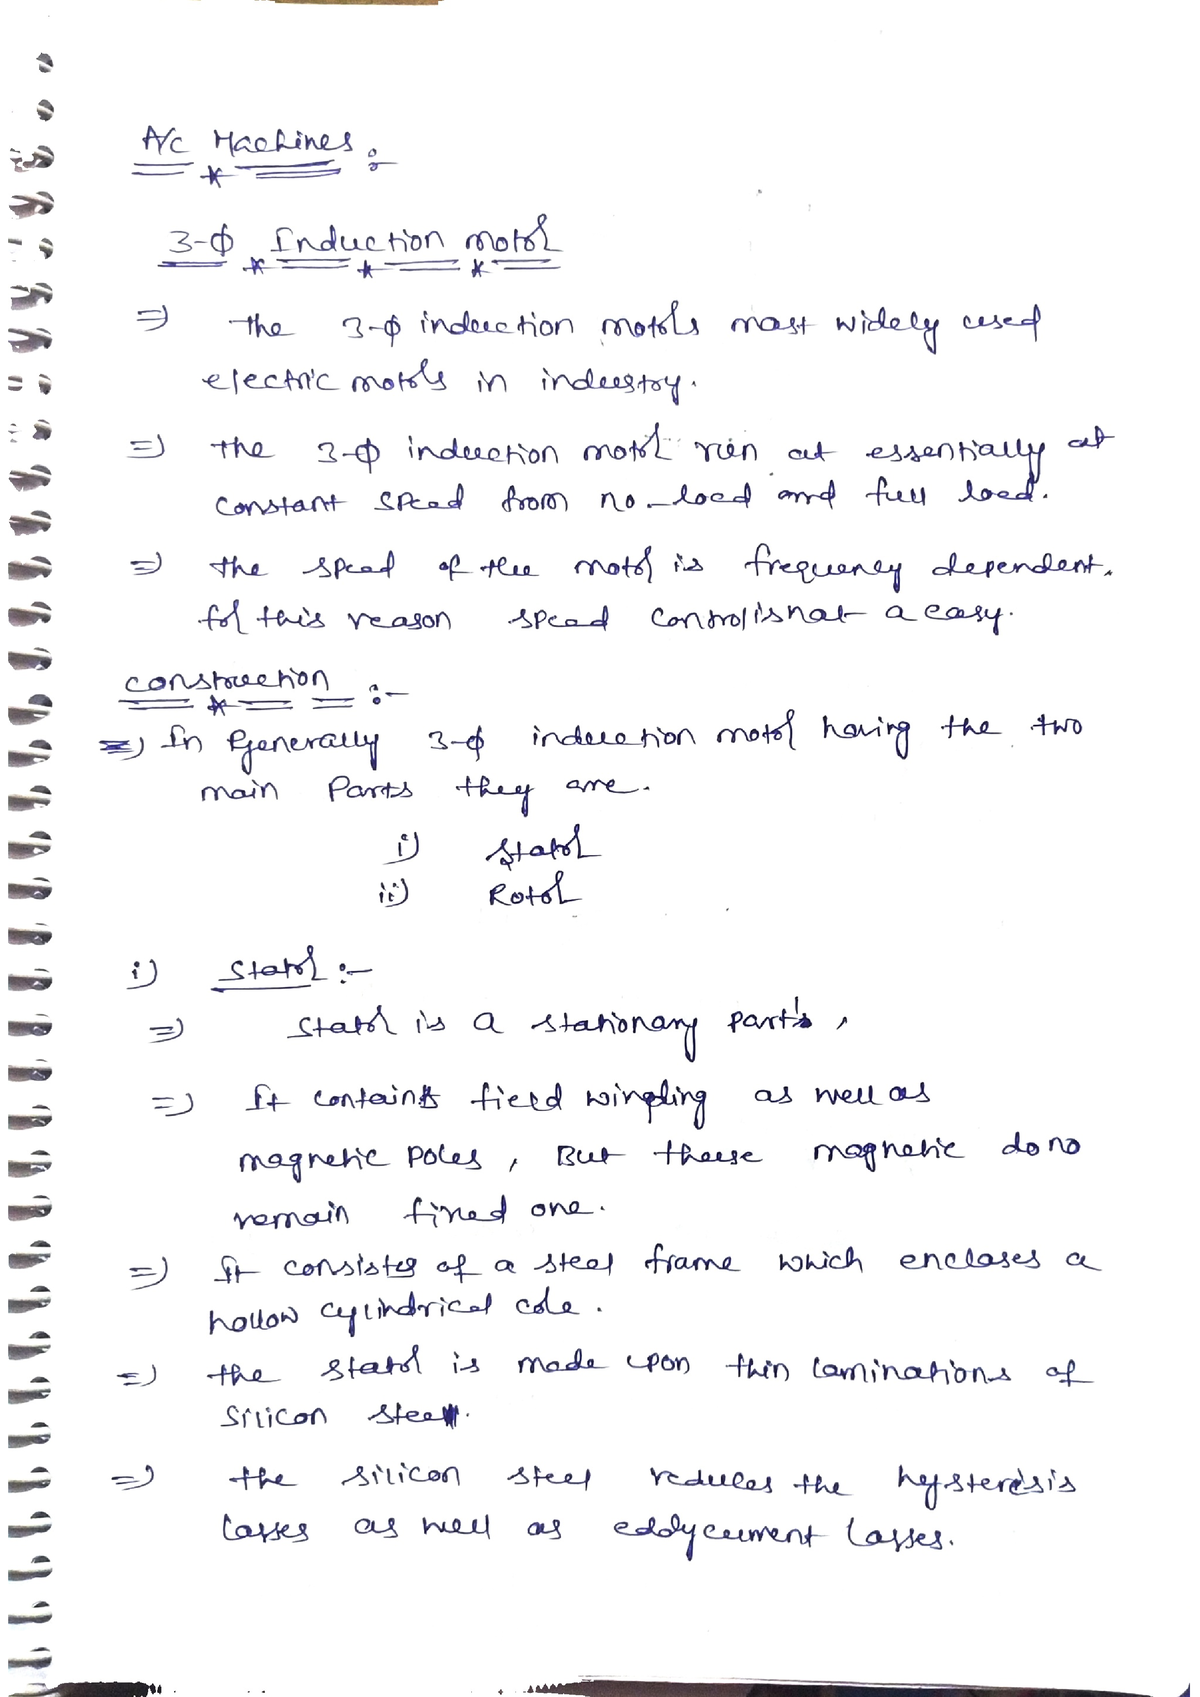 A/C Machines :-
3-ϕ Induction motor
⇒ the 3-ϕ induction motors most widely used
electric motors in industry.
⇒ the 3-ϕ induction motor run at essentially at
constant speed from no-load and full load.
⇒ the speed of the motor is frequency dependent.
for this reason speed control is not a easy.
construction :-
⇒ In generally 3-ϕ induction motor having the two
main Parts they are.
i) Stator
ii) Rotor
i) Stator :-
⇒ Stator is a stationary part's,
⇒ It contains field winding as well as
magnetic poles, But these magnetic do no
remain fixed one.
⇒ It consists of a steel frame which encloses a
hollow cylindrical core.
⇒ the stator is made upon thin laminations of
silicon steel.
⇒ the silicon steel reduces the hysteresis
losses as well as eddycurrent losses.